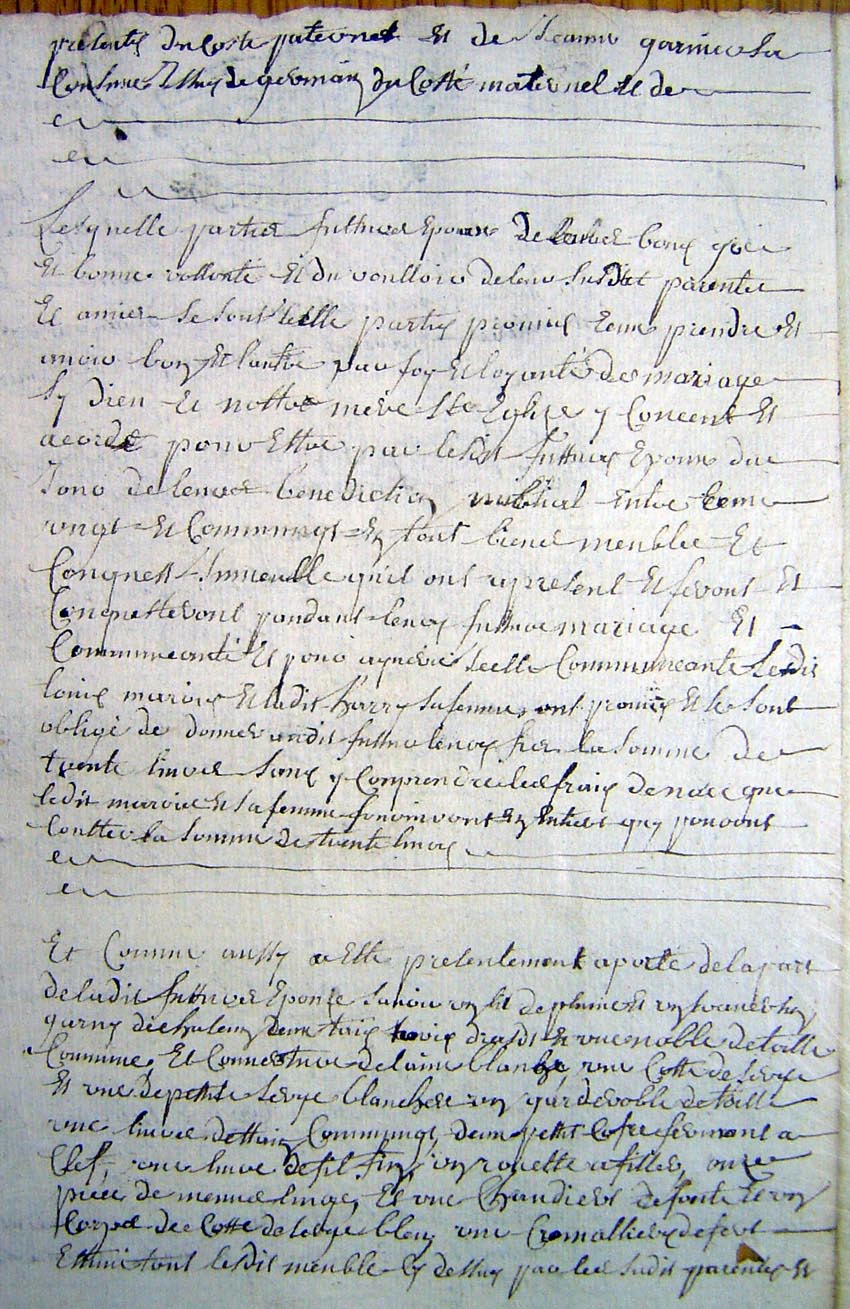 presentis du Coste paternel Et de Jeanne garnier sa
Cousine Issus de germain du Costé maternel Et de
Et
Et
Lesquelle parties futtures Epoux De leurs bons gréé
Et bonne vollonté Et du voulloir de leur susdit parentes
Et amies se sont Icelle parties promis prendre Et
avoir lun Et lautre par foy Et loyauté des mariage
Sy dieu Et nottre mère Ste Eglize y Concent Et
acorde pour Estre par lesdit futturs Epoux du
Jour de leurs benediction nubtial Entre
ungt Et Commungt En tout biens meubles Et
Conquest Immeuble quil ont apresent Et feront Et
Conquetteront pandant leur futture mariage Et
Communeauté Et pour aquérir Icelle Communeauté Lesdit
louis marois Et ladit sa femme ont promis Et se sont
obligé de donner audit futture leur fils la somme de
trente livres sans y Comprendre les frais de noce que
ledit marois Et sa femme fourniront En Entier quy pouront
Coutter la somme de trente livres
Et
Et
Et Comme aussy a Esté presentement aporté de la part
de ladit futture Epouze savoir un lit de plume Et un traversin
garny trois draps Et une de toille
Commune, Et Couverture de laine blanche, une Cotte de serge
Et une de petite serge blanche un garderoble de toille
une livre dettain Commungt un petit Cofre fermant a
Clef, une livre de fil fin, un rouette a filler, onze
piece de menue linge, Et une Chaudiere de fonte Et un
Corps de Cotte de serge bleu une Cremalliere de fert
Estimé tout lesdit meuble Cy dessus par les susdit parentes Et